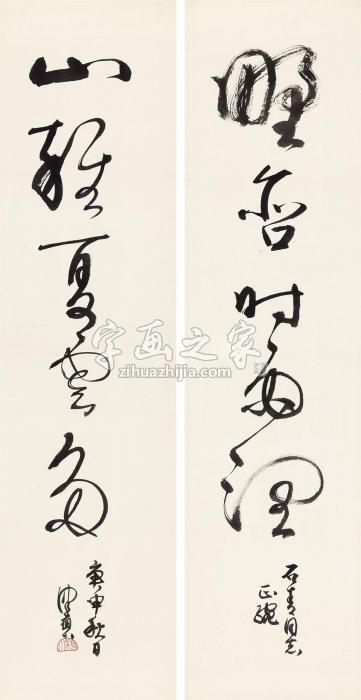 野含时雨潤
石青同志
正腕
山雜夏雲多
庚申秋日
字画之家
zihuazhijia.com